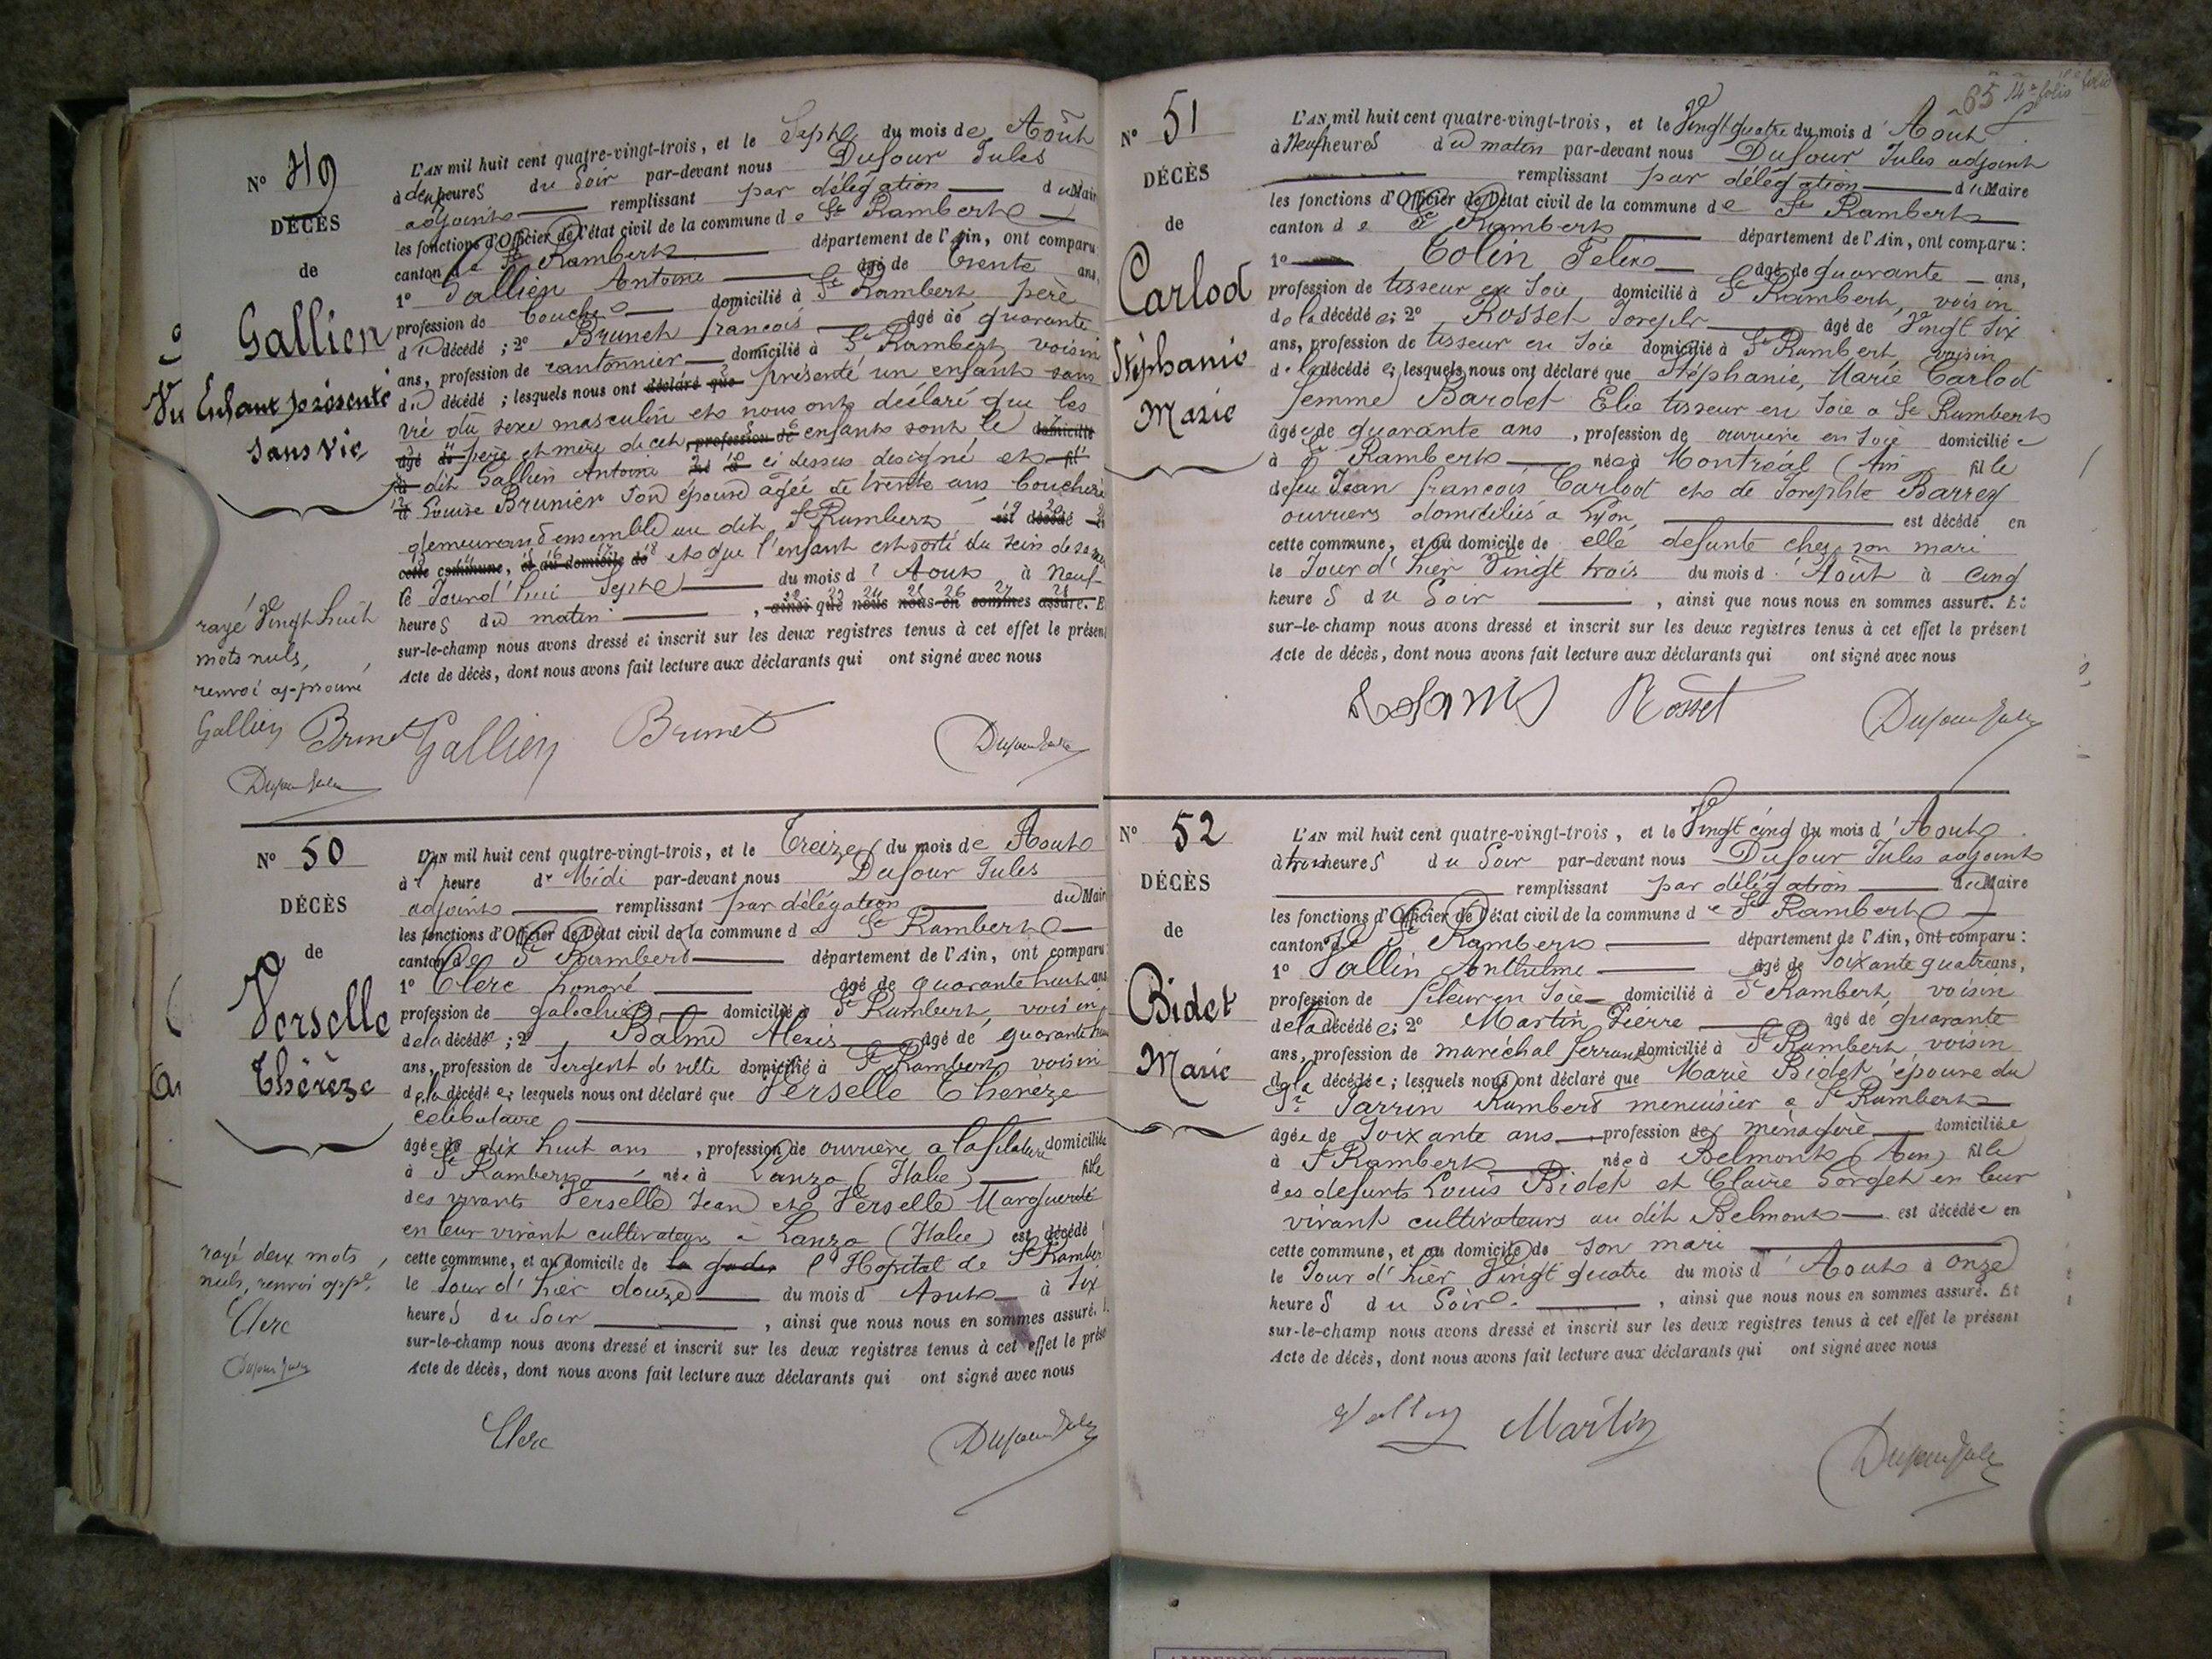 N° 49
DÉCÈS
de
Gallien
Enfant présenté
sans vie
L'AN mil huit cent quatre-vingt-trois, et le Sept du mois de Août
à deux heures du Soir par-devant nous Dufour Jules
adjoint remplissant par délégation du Maire
les fonctions d'Officier de l'état civil de la commune de St Rambert
canton de St Rambert département de l'Ain, ont comparu
1° Gallien Antoine âgé de trente ans,
profession de boucher domicilié à St Rambert, père
du décédé ; 2° Brunet francois âgé de quarante
ans, profession de cantonnier domicilié à St Rambert, voisin
du décédé ; lesquels nous ont déclaré que présenté un enfant sans
vie du sexe masculin et nous ont déclaré que les
père et mère de cet profession de enfant sont le domicilié
dit Gallien Antoine ci dessus designé et
Louise Brunier son épouse agée de trente ans bouchère
demeurand ensemble au dit St Rambert est décédé
cette commune, et au domicile de et que l'enfant est sorti du sein de sa
le Jourd'hui Sept du mois d'Aout à Neuf
heures du matin, ainsi que nous nous en sommes assuré. E
sur-le-champ nous avons dressé et inscrit sur les deux registres tenus à cet effet le présent
Acte de décès, dont nous avons fait lecture aux déclarants qui ont signé avec nous
rayé Vingt huit
mots nuls,
renvoi approuvé
Gallien Brunet Gallien Brunet Dufour Jules
Dufour Jules
N° 50
DÉCÈS
de
Verselle
Thérèze
L'AN mil huit cent quatre-vingt-trois, et le Treize du mois de Aout
à 1 heure de Midi par-devant nous Dufour Jules
adjoint remplissant par délégation du Maire
les fonctions d'Officier de l'état civil de la commune de St Rambert
canton de St Rambert département de l'Ain, ont comparu
1° Clerc honoré âgé de quarante huit ans
profession de galochier domicilié à St Rambert, voisin
de la décédée ; 2° Balme Alexis âgé de quarante
ans, profession de Sergent de ville domicilié à St Rambert, voisin
de la décédée ; lesquels nous ont déclaré que Verselle Thereze
célibataire
âgée de dix huit ans, profession de ouvrière a la filature domiciliée
à St Rambert née à Lanzo (Italie) fille
des vivants Verselle Jean et Verselle Marguerite
en leur vivant cultivateurs à Lanzo (Italie) est décédé
cette commune, et au domicile de l'Hopital de St Rambert
le Jour d'hier douze du mois d'Aout à Six
heures du Soir, ainsi que nous nous en sommes assuré.
sur-le-champ nous avons dressé et inscrit sur les deux registres tenus à cet effet le prése
Acte de décès, dont nous avons fait lecture aux déclarants qui ont signé avec nous
rayé deux mots
nuls, renvoi appé.
Clerc
Dufour Jules
Clerc Dufour Jules
65
N° 51
DÉCÈS
de
Carlod
Stéphanie
Marie
L'AN mil huit cent quatre-vingt-trois, et le Vingt quatre du mois d'Août
à Neuf heures du matin par-devant nous Dufour Jules adjoint
remplissant par délégation du Maire
les fonctions d'Officier de l'état civil de la commune de St Rambert
canton de St Rambert département de l'Ain, ont comparu :
1° Colin Felix âgé de quarante ans,
profession de tisseur en Soie domicilié à St Rambert, voisin
de la décédée ; 2° Rosset Joseph âgé de Vingt Six
ans, profession de tisseur en Soie domicilié à St Rambert, voisin
de la décédée ; lesquels nous ont déclaré que Stéphanie, Marie Carlod
femme Bardet Elie tisseur en Soie a St Rambert
âgée de quarante ans, profession de ouvrière en Soie domiciliée
à St Rambert née à Montréal (Ain fille
de feu Jean francois Carlod et de Josephte Barrey
ouvriers domiciliés a Lyon, est décédé en
cette commune, et au domicile de elle defunte chez son mari
le Jour d'hier Vingt trois du mois d'Août à Cinq
heures du Soir, ainsi que nous nous en sommes assuré. Et
sur-le-champ nous avons dressé et inscrit sur les deux registres tenus à cet effet le présent
Acte de décès, dont nous avons fait lecture aux déclarants qui ont signé avec nous
Rosset Dufour Jules
N° 52
DÉCÈS
de
Bidet
Marie
L'AN mil huit cent quatre-vingt-trois, et le Vingt cinq du mois d'Aout
à trois heures du Soir par-devant nous Dufour Jules adjoint
remplissant par délégation du Maire
les fonctions d'Officier de l'état civil de la commune de St Rambert
canton de St Rambert département de l'Ain, ont comparu :
1° Vallin Anthelme âgé de Soixante quatre ans,
profession de fileur en Soie domicilié à St Rambert, voisin
de la décédée ; 2° Martin Pierre âgé de quarante
ans, profession de maréchal ferrant domicilié à St Rambert voisin
de la décédée ; lesquels nous ont déclaré que Marie Bidet épouse du
Sr Jarrin Rambert menuisier a St Rambert
âgée de Soixante ans, profession de ménagère domiciliée
à St Rambert née à Belmont (Ain) fille
des defunts Louis Bidet et Claire Gorget en leur
vivant cultivateurs au dit Belmont est décédée en
cette commune, et au domicile de son mari
le Jour d'hier Vingt quatre du mois d'Aout à onze
heures du Soir, ainsi que nous nous en sommes assuré. Et
sur-le-champ nous avons dressé et inscrit sur les deux registres tenus à cet effet le présent
Acte de décès, dont nous avons fait lecture aux déclarants qui ont signé avec nous
Vallin Martin Dufour Jules